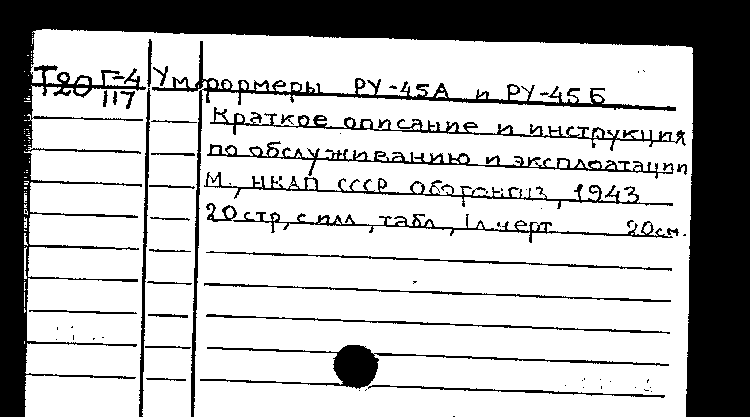 Т20 Г-4 Умформеры РУ-45А и РУ-45Б
117
Краткое описание и инструкция
по обслуживанию и эксплоатации
М., НКАП СССР Оборонгиз, 1943
20 стр, с илл, табл, 1л черт 20 см.